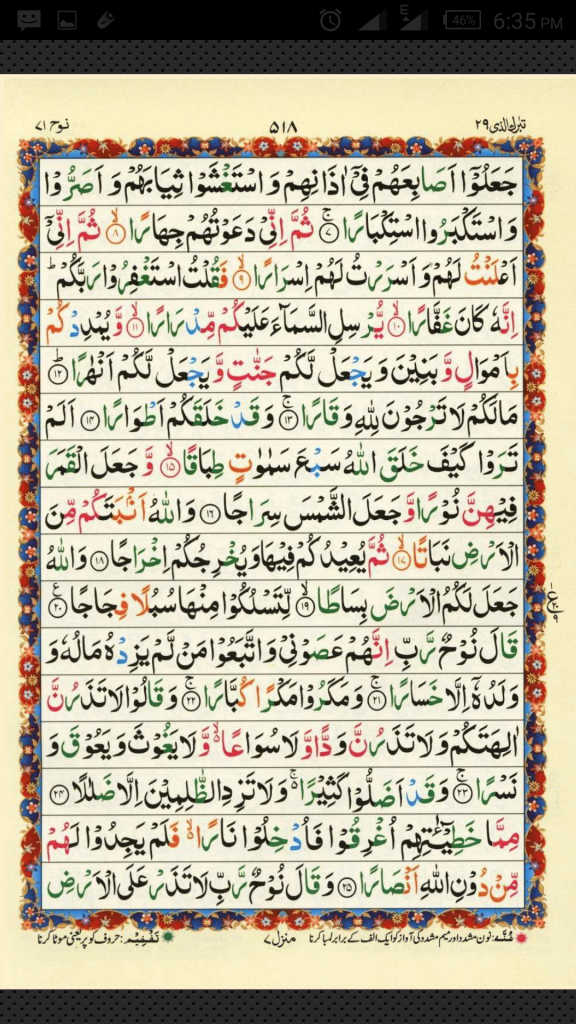 46% 6:35 PM
E
تبٰرك الذی ۲۹
۵۱۸
نوح ۷۱
جَعَلُوْۤا اَصَابِعَهُمْ فِیْۤ اٰذَانِهِمْ وَ اسْتَغْشَوْا ثِیَابَهُمْ وَ اَصَرُّوْا
وَ اسْتَكْبَرُوا اسْتِكْبَارًا ۚ۷ ثُمَّ اِنِّیْ دَعَوْتُهُمْ جِهَارًا ۙ۸ ثُمَّ اِنِّیْۤ
اَعْلَنْتُ لَهُمْ وَ اَسْرَرْتُ لَهُمْ اِسْرَارًا ۙ۹ فَقُلْتُ اسْتَغْفِرُوْا رَبَّكُمْ ؕ
اِنَّهٗ كَانَ غَفَّارًا ۙ۱۰ یُّرْسِلِ السَّمَآءَ عَلَیْكُمْ مِّدْرَارًا ۙ۱۱ وَّ یُمْدِدْكُمْ
بِاَمْوَالٍ وَّ بَنِیْنَ وَ یَجْعَلْ لَّكُمْ جَنّٰتٍ وَّ یَجْعَلْ لَّكُمْ اَنْهٰرًا ؕ۱۲
مَا لَكُمْ لَا تَرْجُوْنَ لِلّٰهِ وَقَارًا ۚ۱۳ وَ قَدْ خَلَقَكُمْ اَطْوَارًا ۱۴ اَلَمْ
تَرَوْا كَیْفَ خَلَقَ اللّٰهُ سَبْعَ سَمٰوٰتٍ طِبَاقًا ۙ۱۵ وَّ جَعَلَ الْقَمَرَ
فِیْهِنَّ نُوْرًا وَّ جَعَلَ الشَّمْسَ سِرَاجًا ۱۶ وَ اللّٰهُ اَنْۢبَتَكُمْ مِّنَ
الْاَرْضِ نَبَاتًا ۙ۱۷ ثُمَّ یُعِیْدُكُمْ فِیْهَا وَ یُخْرِجُكُمْ اِخْرَاجًا ۱۸ وَ اللّٰهُ
جَعَلَ لَكُمُ الْاَرْضَ بِسَاطًا ۙ۱۹ لِّتَسْلُكُوْا مِنْهَا سُبُلًا فِجَاجًا ۠۲۰
قَالَ نُوْحٌ رَّبِّ اِنَّهُمْ عَصَوْنِیْ وَ اتَّبَعُوْا مَنْ لَّمْ یَزِدْهُ مَالُهٗ وَ
وَلَدُهٗۤ اِلَّا خَسَارًا ۚ۲۱ وَ مَكَرُوْا مَكْرًا كُبَّارًا ۚ۲۲ وَ قَالُوْا لَا تَذَرُنَّ
اٰلِهَتَكُمْ وَ لَا تَذَرُنَّ وَدًّا وَّ لَا سُوَاعًا ۙ۬ وَّ لَا یَغُوْثَ وَ یَعُوْقَ وَ
نَسْرًا ۚ۲۳ وَ قَدْ اَضَلُّوْا كَثِیْرًا ۚ۬ وَ لَا تَزِدِ الظّٰلِمِیْنَ اِلَّا ضَلٰلًا ۲۴
مِمَّا خَطِیْٓـٰٔتِهِمْ اُغْرِقُوْا فَاُدْخِلُوْا نَارًا ۙ۬ فَلَمْ یَجِدُوْا لَهُمْ
مِّنْ دُوْنِ اللّٰهِ اَنْصَارًا ۲۵ وَ قَالَ نُوْحٌ رَّبِّ لَا تَذَرْ عَلَی الْاَرْضِ
غُنَّه: نون مشدد اور میم مشدد کی آواز کو ایک الف کے برابر لمبا کرنا
منزل ۷
تَفْخِیْم: حروف کو پُر یعنی موٹا کرنا